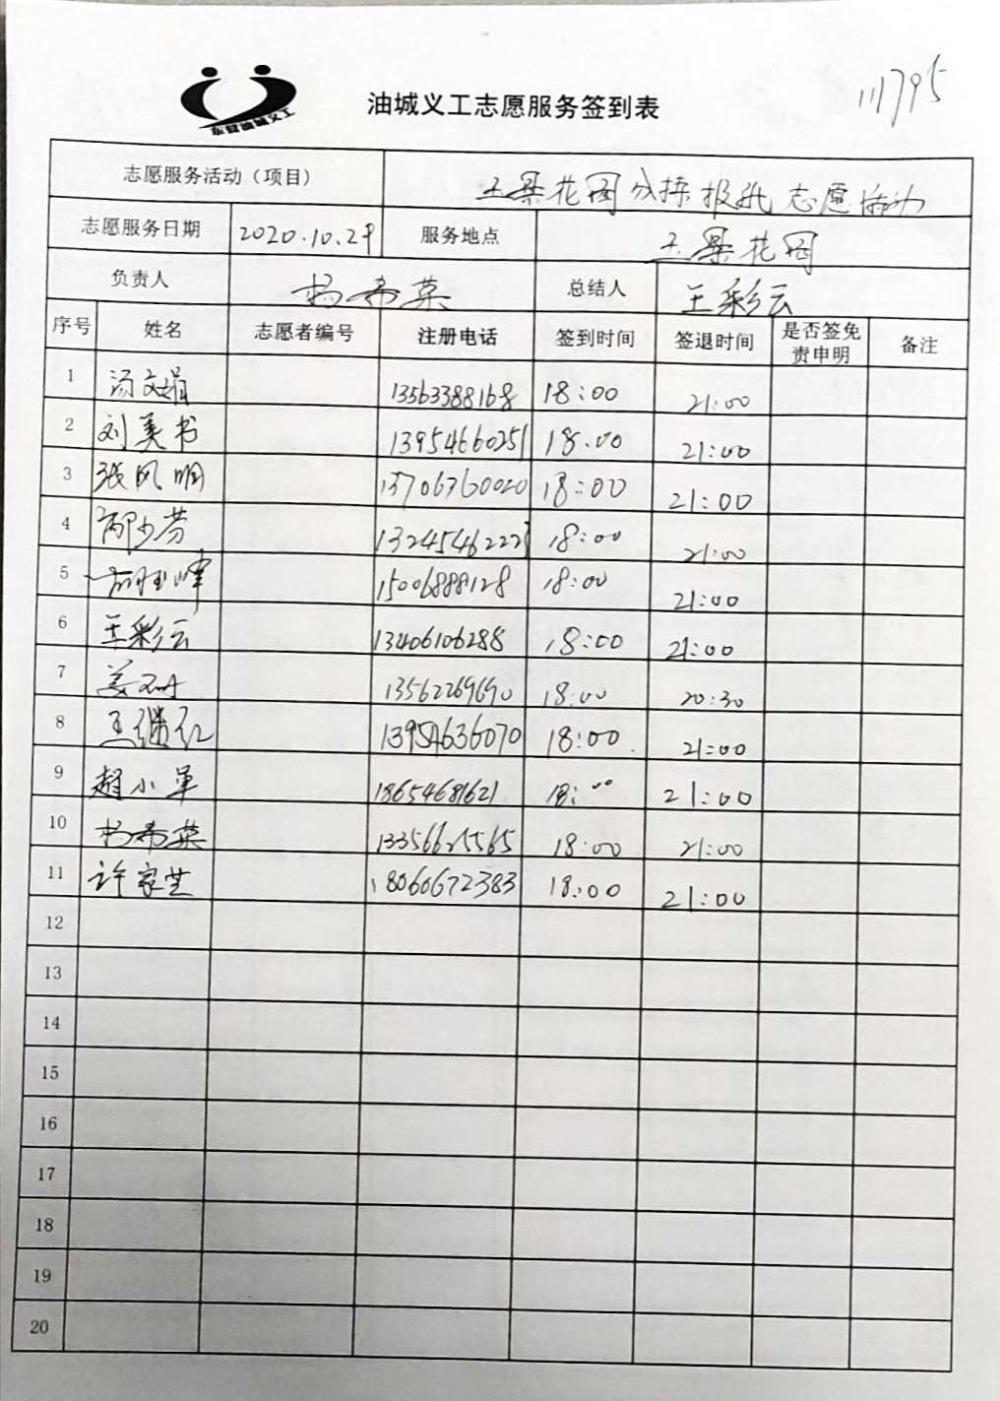 东营油城义工
油城义工志愿服务签到表
111795
志愿服务活动（项目） 玉景花园分拣报纸志愿活动
志愿服务日期 2020.10.29 服务地点 玉景花园
负责人 杨希英 总结人 王彩云
序号 姓名 志愿者编号 注册电话 签到时间 签退时间 是否签免责申明 备注
1 汤文娟 13563388168 18:00 21:00
2 刘美书 13954660251 18:00 21:00
3 张凤明 13706360020 18:00 21:00
4 邵少芬 18:00 21:00
5 15006888128 18:00 21:00
6 王彩云 13406106288 18:00 21:00
7 姜 13562269690 18:00 20:30
8 王继红 13954636070 18:00 21:00
9 赵小军 18654681621 18:00 21:00
10 杨希英 13356625565 18:00 21:00
11 许家芝 18060672383 18:00 21:00
12
13
14
15
16
17
18
19
20